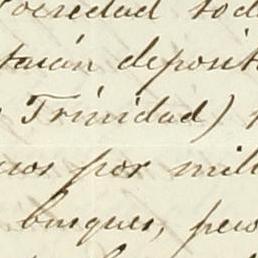 sociedad tod
tarán deposit
Trinidad)
por mil
buques, pero